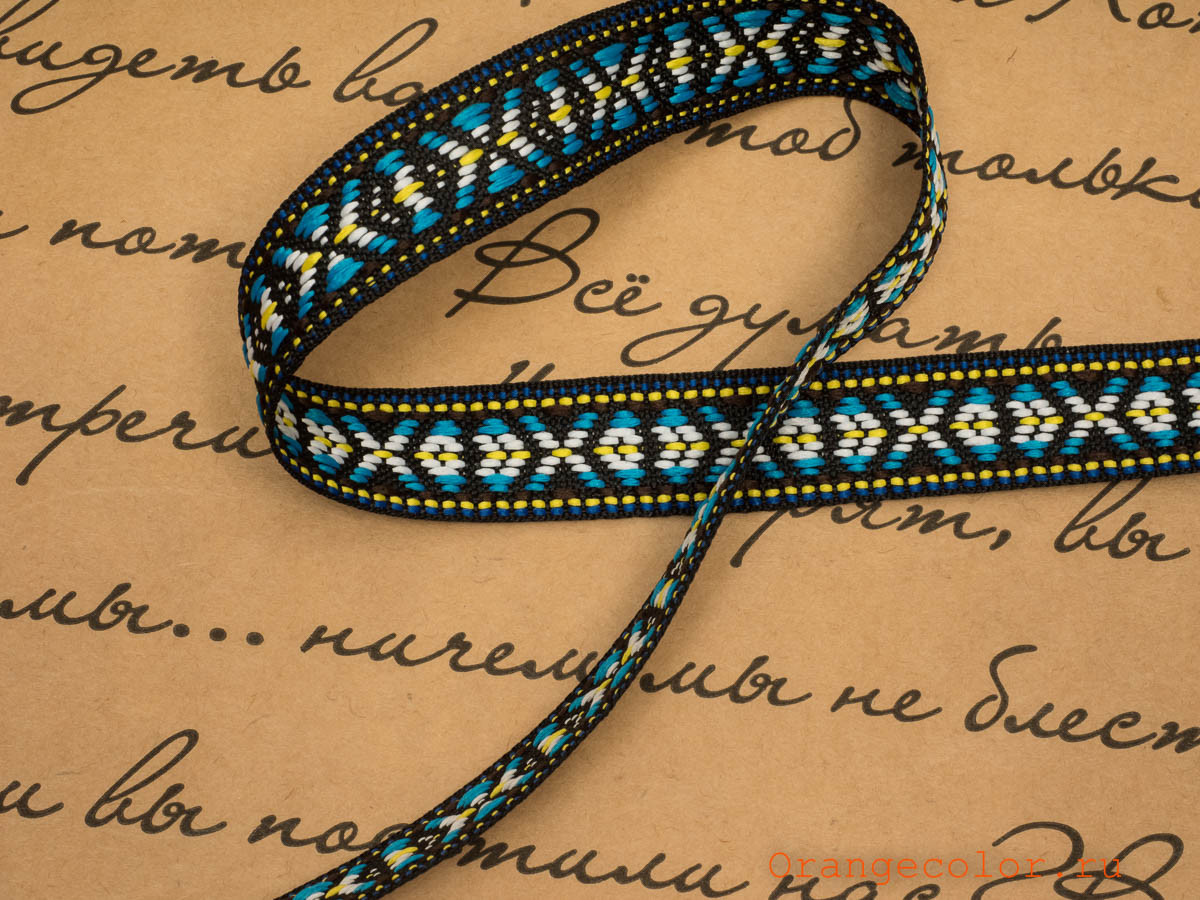 видеть ва
тоб только
пот
Всё думать
тречи
рят, вы
мы... ничем мы не блест
и вы по тили нас? В
Orangecolor.ru